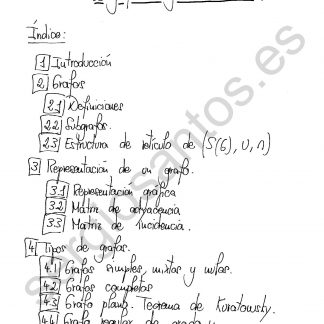 Índice:
1 Introducción
2 Grafos
2.1 Definiciones
2.2 Subgrafos.
2.3 Estructura de retículo de (S(G), U, ∩)
3 Representación de un grafo.
3.1 Representación gráfica
3.2 Matriz de adyacencia
3.3 Matriz de incidencia.
4 Tipos de grafos.
4.1 Grafos simples, mixtos y nulos.
4.2 Grafos completos
4.3 Grafo plano. Teorema de Kuratowsky.
4.4 Grafo regular de grado
sergiosantos.es